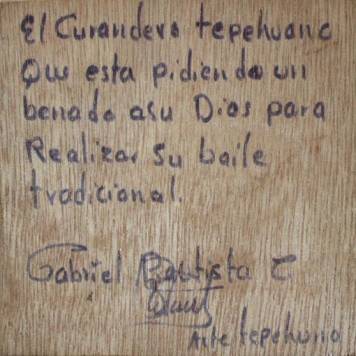 El Curandero tepehuano
Que esta pidiendo un
benado asu Dios para
Realizar su baile
tradicional.
Gabriel Bautista C
Arte tepehuano